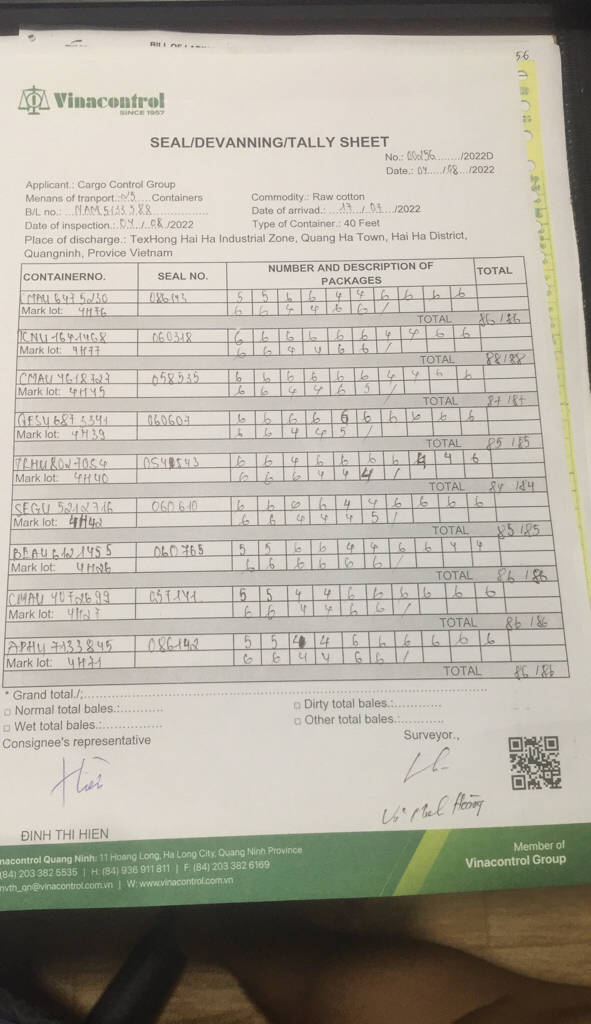 56
Vinacontrol
SINCE 1957
SEAL/DEVANNING/TALLY SHEET
No.: 00256......../2022D
Date.: 04...../08...../2022
Applicant.: Cargo Control Group
Menans of tranport.: 25.....Containers Commodity.: Raw cotton
B/L no.: NAM5133988 Date of arrivad.: 17.../07.../2022
Date of inspection.: 04/.08./2022 Type of Container.: 40 Feet
Place of discharge.: TexHong Hai Ha Industrial Zone, Quang Ha Town, Hai Ha District,
Quangninh, Provice Vietnam
CONTAINERNO. SEAL NO. NUMBER AND DESCRIPTION OF PACKAGES TOTAL
CMAU 6475230 086143 5 5 6 6 4 4 6 6 6 6
Mark lot: 4H76 6 6 4 4 6 6 /
TOTAL 86/86
060318 6 6 6 6 6 6 4 4 6 6
Mark lot: 4H77 6 6 4 4 6 6 /
TOTAL 88/88
CMAU 4618727 058535 6 6 6 6 6 6 4 4 6 6
Mark lot: 4H45 6 6 4 4 6 5 /
TOTAL 87/87
GESU 6873341 060607 6 6 6 6 6 6 6 6 6 6
Mark lot: 4H39 6 6 4 4 5 /
TOTAL 85/85
TRHU 8027054 6 6 4 6 6 6 6 4 4 6
Mark lot: 4H40 6 6 6 4 4 4 /
TOTAL 84/84
SEGU 5212716 060610 6 6 6 6 4 4 6 6 6 6
Mark lot: 4H42 6 6 4 4 4 5 /
TOTAL 85/85
BEAU 6121455 060765 5 5 6 6 4 4 6 6 4 4
Mark lot: 4H26 6 6 6 6 6 6 /
TOTAL 86/86
CMAU 4072699 057141 5 5 4 4 6 6 6 6 6 6
Mark lot: 4H27 6 6 4 4 6 6 /
TOTAL 86/86
APHU 7133845 086142 5 5 4 4 6 6 6 6 6 6
Mark lot: 4H71 6 6 4 4 6 6 /
TOTAL 86/86
* Grand total./;
□ Normal total bales.:........... □ Dirty total bales.:............
□ Wet total bales.:............... □ Other total bales.:...........
Consignee's representative Surveyor.,
Hiền
ĐINH THI HIEN
nacontrol Quang Ninh: 11 Hoang Long, Ha Long City, Quang Ninh Province
(84) 203 382 5535 | H: (84) 936 911 811 | F (84) 203 382 6169
nvth_qn@vinacontrol.com.vn | W: www.vinacontrol.com.vn
Member of
Vinacontrol Group